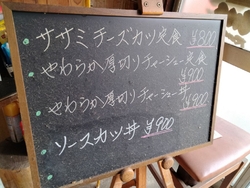 ササミチーズカツ定食 ¥900
やわらか厚切りチャーシュー定食
¥900
やわらか厚切りチャーシュー丼
¥900
ソースカツ丼 ¥900